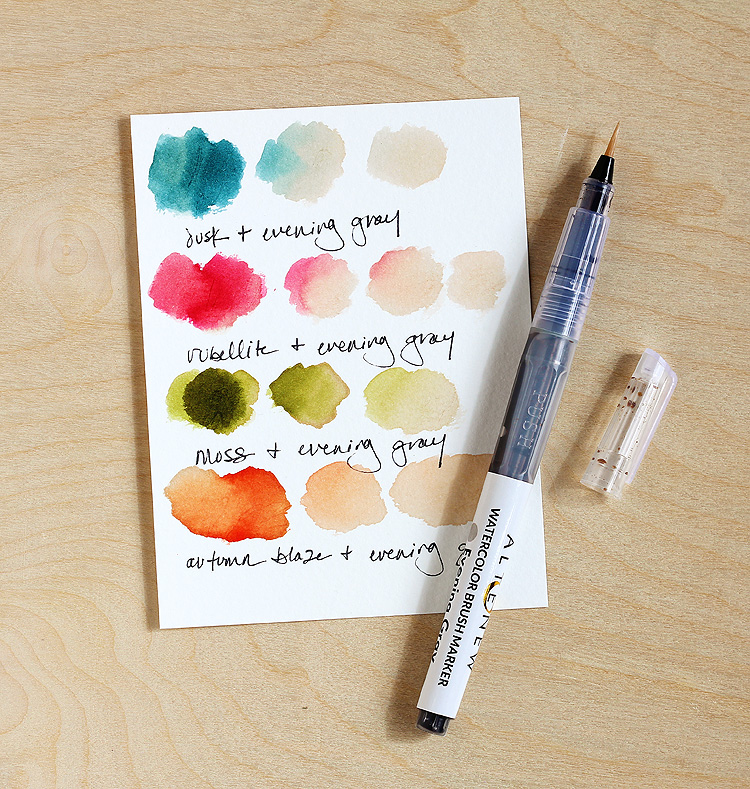 dusk + evening gray
rubellite + evening gray
moss + evening gray
autumn blaze + evening
PUSH
ALTENEW
WATERCOLOR BRUSH MARKER
Evening Gray